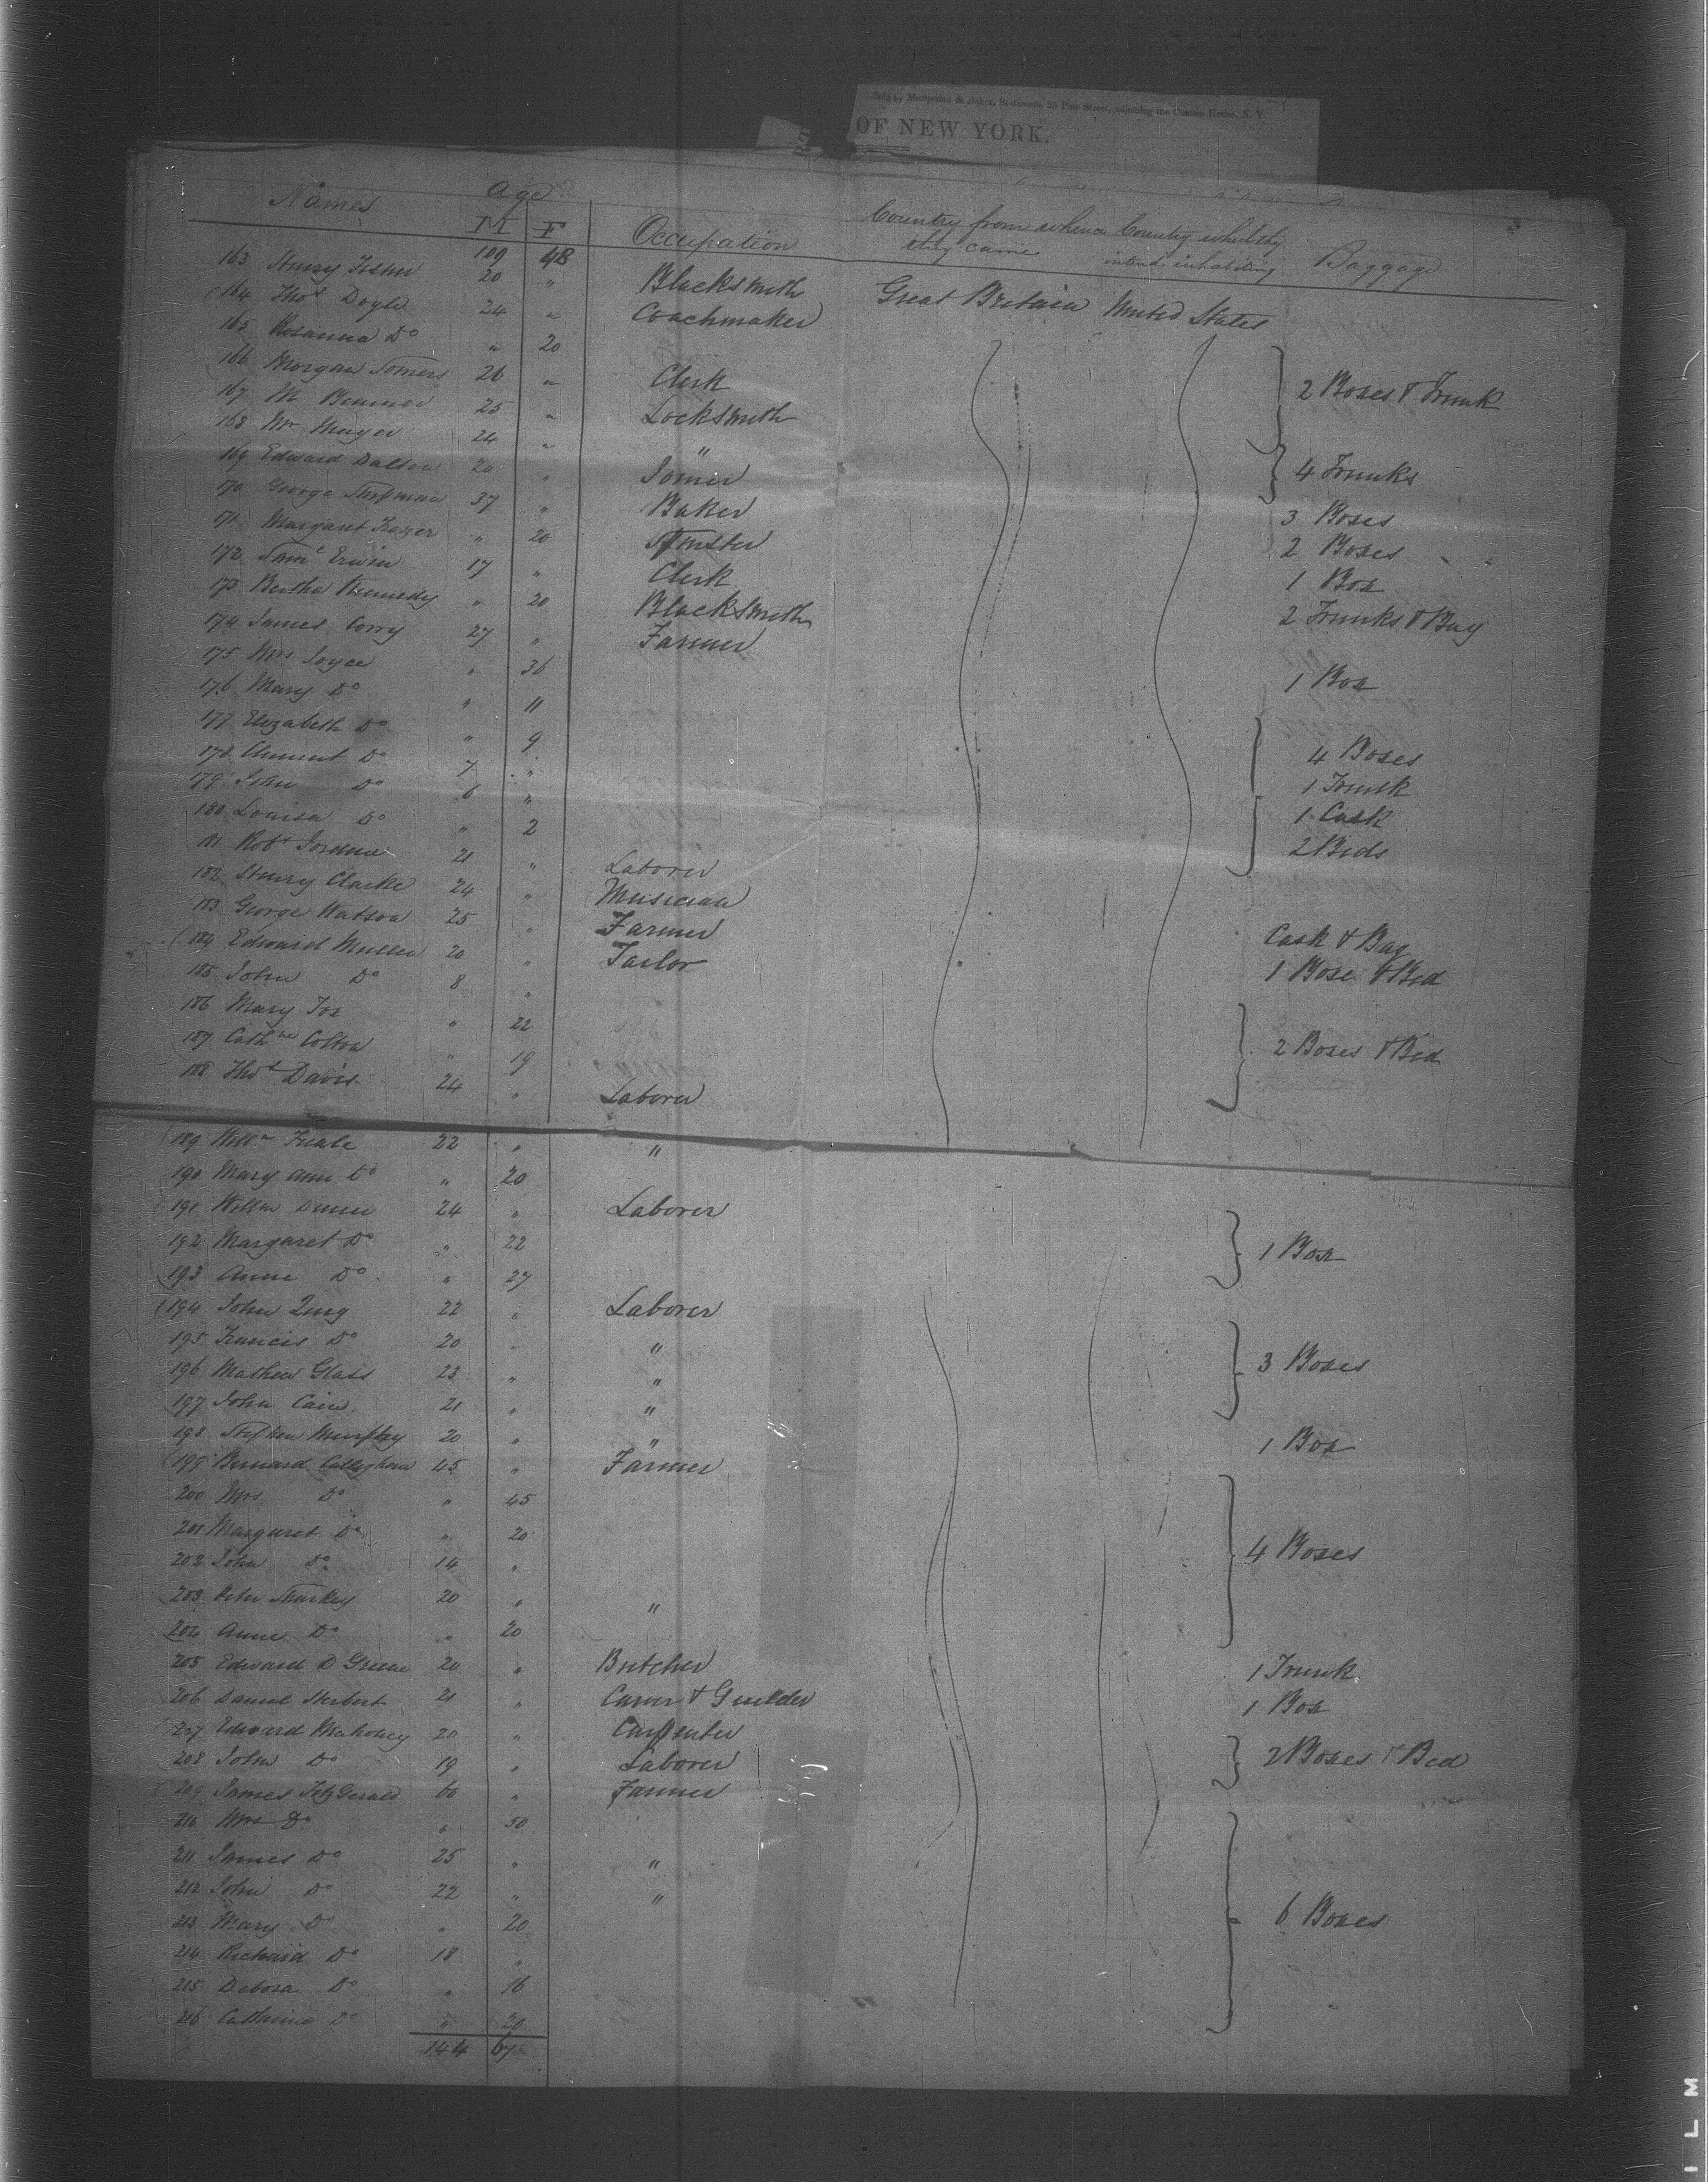 Sold by McSpedon & Baker, Stationers, 25 Pine Street, adjoining the Custom House, N. Y.
OF NEW YORK.
Names Age M F Occupation Country from whence they came Country which they intend inhabiting Baggage
109 48
163 Henry 20 " Blacksmith Great Britain United States
164 Thos Doyle 24 " Coachmaker
165 Rosanna Do " 20
166 Morgan Somers 26 " Clerk 2 Boxes & Trunk
167 M 25 " Locksmith
168 Wm Mager 24 " "
169 Edward Dalton 20 " Joiner 4 Trunks
170 George Shipman 37 " Baker 3 Boxes
171 Margaret " 20 2 Boxes
172 Saml Erwin 17 " Clerk 1 Box
173 Bertha Kennedy " 20 Blacksmith 2 Trunks & Bag
174 James Corry 27 " Farmer
175 Mrs Joyce " 36 1 Box
176 Mary Do " 11
177 Elizabeth Do " 9
178 Clement Do 7 " 4 Boxes
179 John Do 6 " 1 Trunk
180 Louisa Do " 2 1 Cask
181 Robt Jordan 21 " Laborer 2 Beds
182 Henry Clarke 24 " Musician
183 George Watson 25 " Farmer Cask & Bag
184 Edward Mullen 20 " Tailor 1 Box & Bed
185 John Do 8 "
186 Mary Fox " 22
187 Cathne Colton " 19 2 Boxes & Bed
188 Thos Davis 24 " Laborer
189 Willm 22 " "
190 Mary Ann Do " 20
191 Willm Dunn 24 " Laborer
192 Margaret Do " 22 1 Box
193 Anne Do " 27
194 John 22 " Laborer
195 Francis Do 20 " "
196 Mathew Glass 23 " " 3 Boxes
197 John Cain 21 " "
198 Stephen Murphy 20 " " 1 Box
199 Bernard Callighan 45 " Farmer
200 Mrs Do " 45
201 Margaret Do " 20
202 John Do 14 " 4 Boxes
203 Peter Sharkey 20 " "
204 Anne Do " 20
205 Edward D Greene 20 " Butcher 1 Trunk
206 Daniel Herbert 21 " Carver & Guilder 1 Box
207 Edward Mahoney 20 " Carpenter
208 John Do 19 " Laborer 2 Boxes & Bed
209 James FitzGerald 60 " Farmer
210 Mrs Do " 50
211 James Do 25 " "
212 John Do 22 " "
213 Mary Do " 20 6 Boxes
214 Richard Do 18 "
215 Debora Do " 16
216 Catherine Do " 20
144 67
ILM